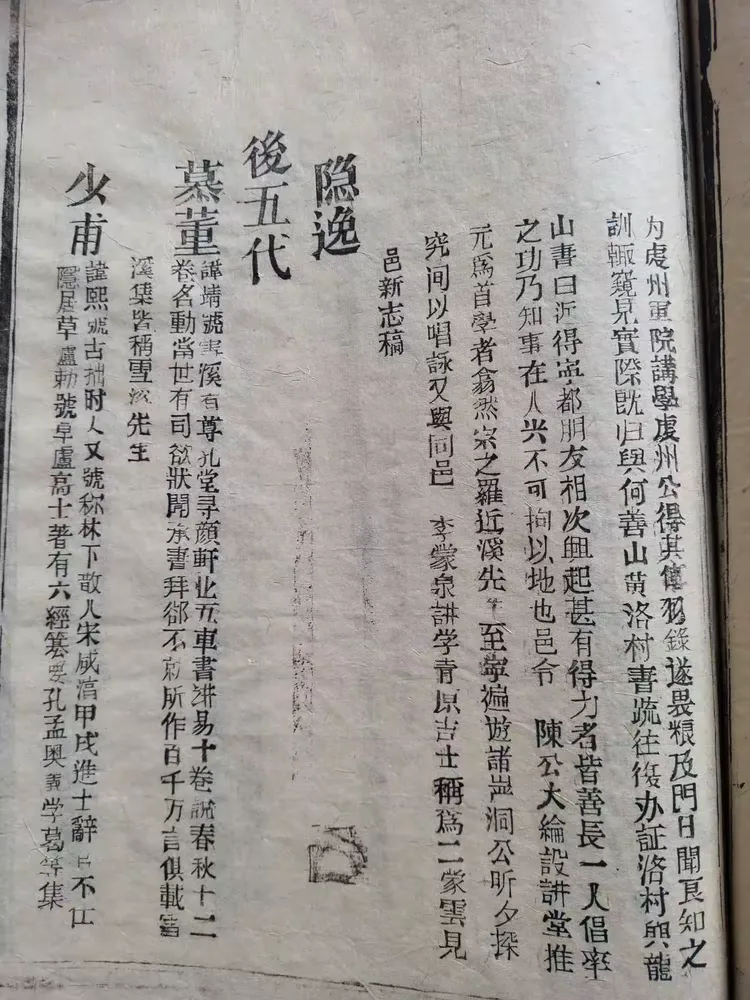 为虔州軍院講學虔州公得其傳习錄遂畏粮及門日聞良知之
訓輙窺見實際既归與何善山黄洛村書疏往復办証洛村與龍
山書曰近得寜都朋友相次興起甚有得力者皆善長一人倡率
之功乃知事在人兴不可拘以地也邑令 陳公大綸設讲堂推
元爲首學者翕然宗之羅近溪先生至寧遍遊諸岩洞公昕夕探
究间以唱詠又與同邑 李蒙泉讲学青原吉士稱爲二蒙雲見
邑新志稿
隐逸
後五代
慕董
諱靖號雪溪有尊孔堂寻顔軒化五車書讲易十卷説春秋十二
卷名動當世有司欲狀開承書拜郤不就所作百千万言俱載雪
溪集皆稱雪溪先生
少甫
諱熙號古拙时人又號称林下散人宋咸淳甲戌進士辭官不仕
隱居草盧勅號草盧高士著有六經纂要孔孟奥義学葛等集